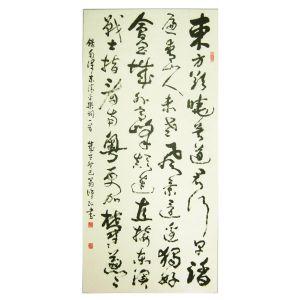 东方欲晓莫道君行早踏
遍青山人未老风景这边独好
会昌城外高峰颠连直接东溟
战士指看南粤更加郁郁葱葱
录毛泽东清平乐词一首